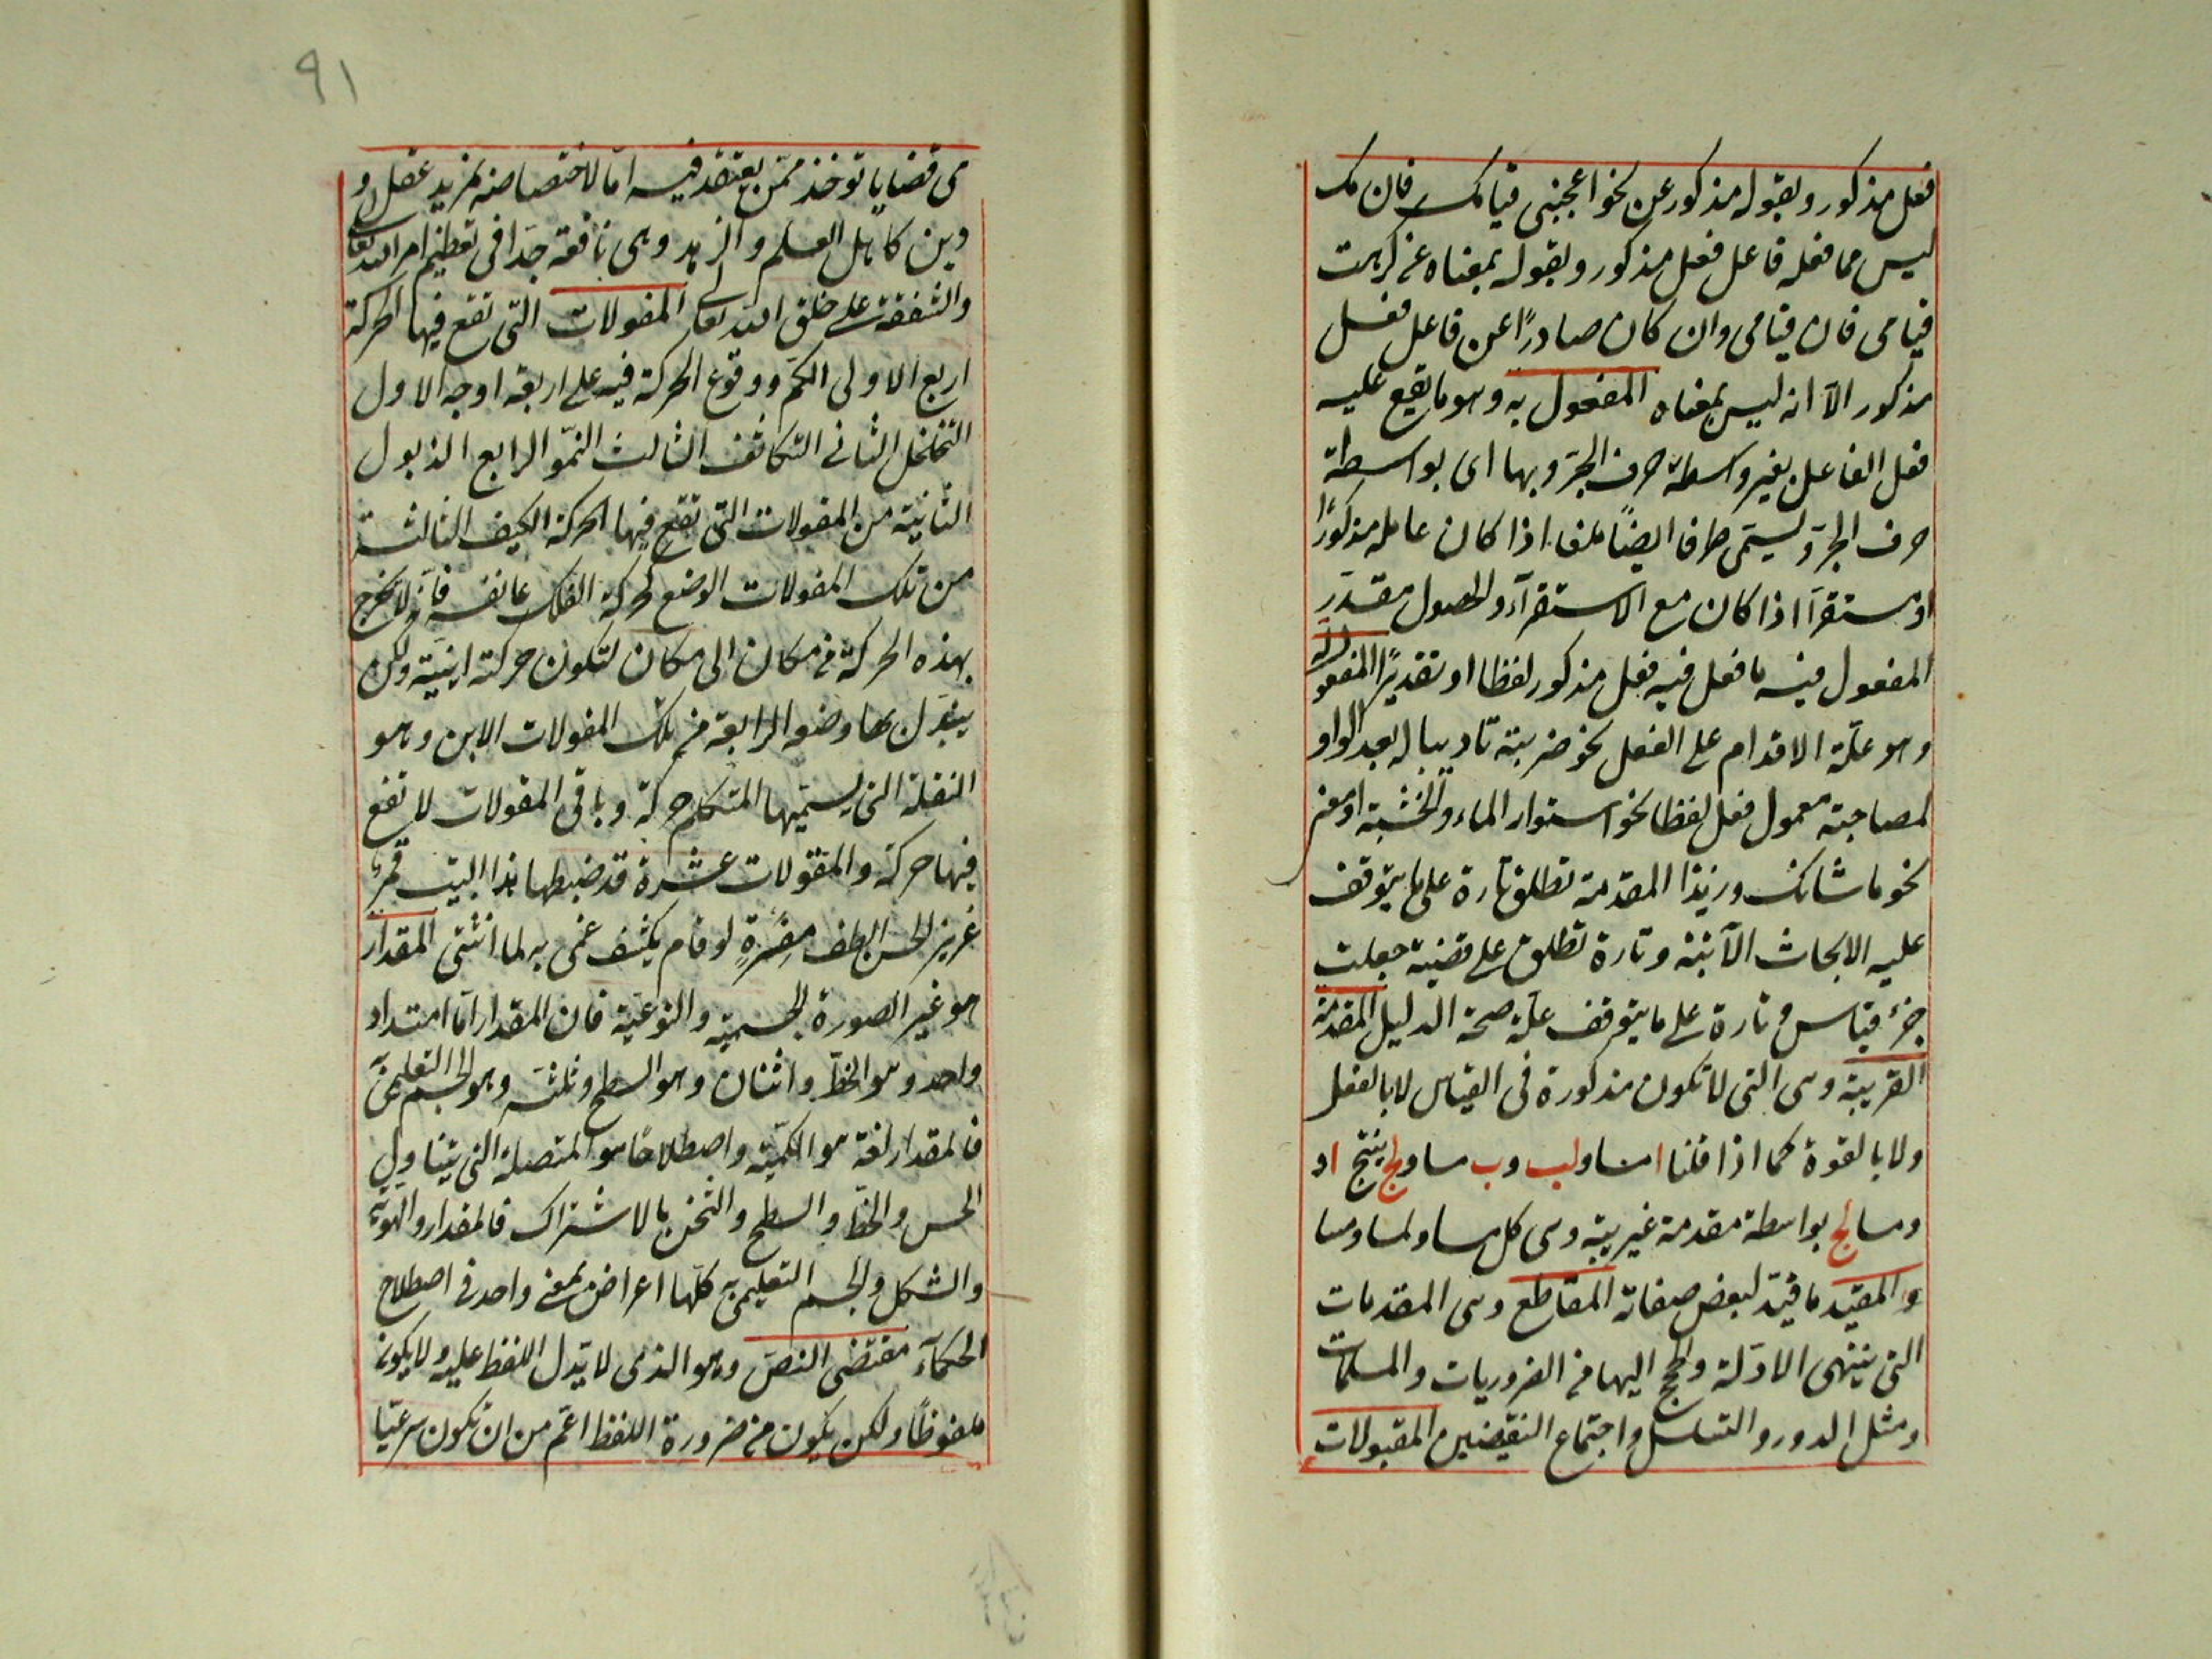 فعل مذكور وبقوله مذكور عن نحو اعجبني قيامك فان مك
ليس مما فعله فاعل فعل مذكور وبقوله بمعناه عن كرهت
قيامي فان قيامي وان كان صادرًا عن فاعل فعل
مذكور الّا انه ليس بمعناه المفعول به وهو ما يقع عليه
فعل الفاعل بغير واسطة حرف الجرّ وبها اى بواسطة
حرف الجرّ ويسمّى ظرفا ايضًا ملغا اذا كان عامله مذكورًا
او مستقرّا اذا كان مع الاستقرآر والحصول مقدّر
المفعول فيه ما فعل فيه فعل مذكور لفظا او تقديرًا المفعول له
وهو علّة الاقدام على الفعل نحو ضربته تاديبا له بعد الواو
لمصاحبة معمول فعل لفظا نحو استوى الماء والخشبة او معنى
نحو ما شانك وزيدا المقدمة تطلق تارة على ما يتوقف
عليه الابحاث الآتية وتارة تطلق على قضية جعلت
جزء قياس وتارة على ما يتوقف عليه صحة الدليل المقدمة
الغريبة وهى التى لا تكون مذكورة فى القياس لا بالفعل
ولا بالقوة كما اذا قلنا ا مساو لب وب مساو لج ينتج ا و
ومسا لج بواسطة مقدمة غريبة وهى كل مساو لمساو مسا
والمقيد ما قيّد لبعض صفاته المقاطع وهى المقدمات
التى ينتهى الادلة والحجج اليها من الضروريات والمسلمات
ومثل الدور والتسلسل واجتماع النقيضين المقبولات
٩١
هى قضايا توخذ ممّن يعتقد فيه امّا لاختصاصه بمزيد عقل و
دين كاهل العلم والزهد وهى نافعة جدّا فى تعظيم امر الله تعالى
والشفقة على خلق الله تعالى المقولات التى تقع فيها الحركة
اربع الاولى الكم ووقوع الحركة فيه على اربعة اوجه الاول
التخلخل الثانى التكاثف الثالث النموّ الرابع الذبول
الثانية من المقولات التى تقع فيها الحركة الكيف الثالثة
من تلك المقولات الوضع كحركة الفلك على نفسه فانّه لا يخرج
بهذه الحركة من مكان الى مكان لتكون حركته اينيّة ولكن
يتبدّل بها وضعه الرابعة من تلك المقولات الاين وهو
النقلة التى يسميّها المتكلم حركة وباقى المقولات لا تقع
فيها حركة والمقولات عشرة قد ضبطها هذا البيت قمر
غزير الحسن الطف مصره لو قام يكشف غمى به لما انثنى المقدار
هو غير الصورة الجسمية والنوعية فان المقدار اما امتداد
واحد وهو الخطّ واثنان وهو السطح وثلثة وهو الجسم التعليمى
فالمقدار لغة هو الكمّية واصطلاحًا هو المتصلة التى يتناول
الجسم والخطّ والسطح والثخن بالاشتراك فالمقدار والهويّة
والشكل والجسم التعليمى كلّها اعراض بمعنى واحد فى اصطلاح
الحكمآء مقتضى النصّ وهو الذى لا يدل اللفظ عليه ولا يكون
ملفوظًا ولكن يكون من ضرورة اللفظ اعمّ من ان يكون شرعيّا